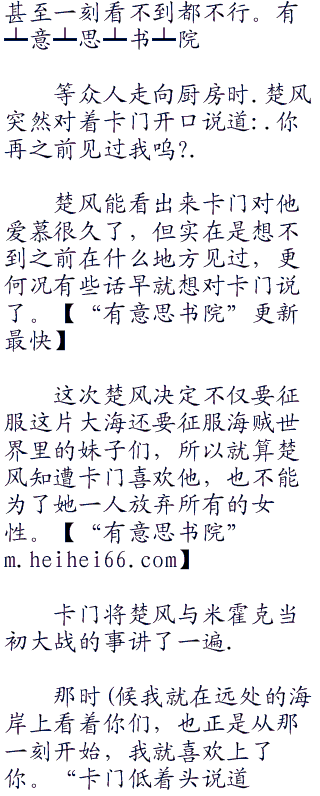 甚至一刻看不到都不行。有
┻意┻思┻书┻院
等众人走向厨房时.楚风
突然对着卡门开口说道:.你
再之前见过我呜?.
楚风能看出来卡门对他
爱慕很久了，但实在是想不
到之前在什么地方见过，更
何况有些话早就想对卡门说
了。【“有意思书院”更新
最快】
这次楚风决定不仅要征
服这片大海还要征服海贼世
界里的妹子们，所以就算楚
风知遭卡门喜欢他，也不能
为了她一人放弃所有的女
性。【“有意思书院”
m.heihei66.com】
卡门将楚风与米霍克当
初大战的事讲了一遍.
那时(候我就在远处的海
岸上看着你们，也正是从那
一刻开始，我就喜欢上了
你。“卡门低着头说道